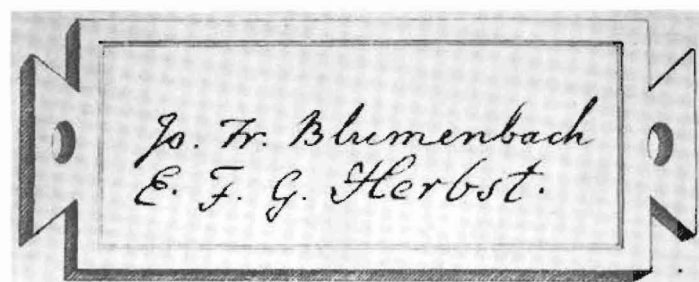 Jo. Fr. Blumenbach
E. F. G. Herbst.